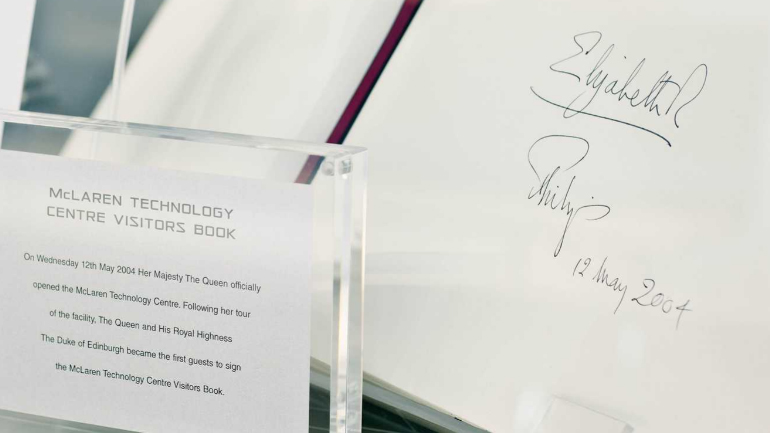 McLAREN TECHNOLOGY
CENTRE VISITORS BOOK
On Wednesday 12th May 2004 Her Majesty The Queen officially
opened the McLaren Technology Centre. Following her tour
of the facility, The Queen and His Royal Highness
The Duke of Edinburgh became the first guests to sign
the McLaren Technology Centre Visitors Book.
Elizabeth R
Philip
12 May 2004